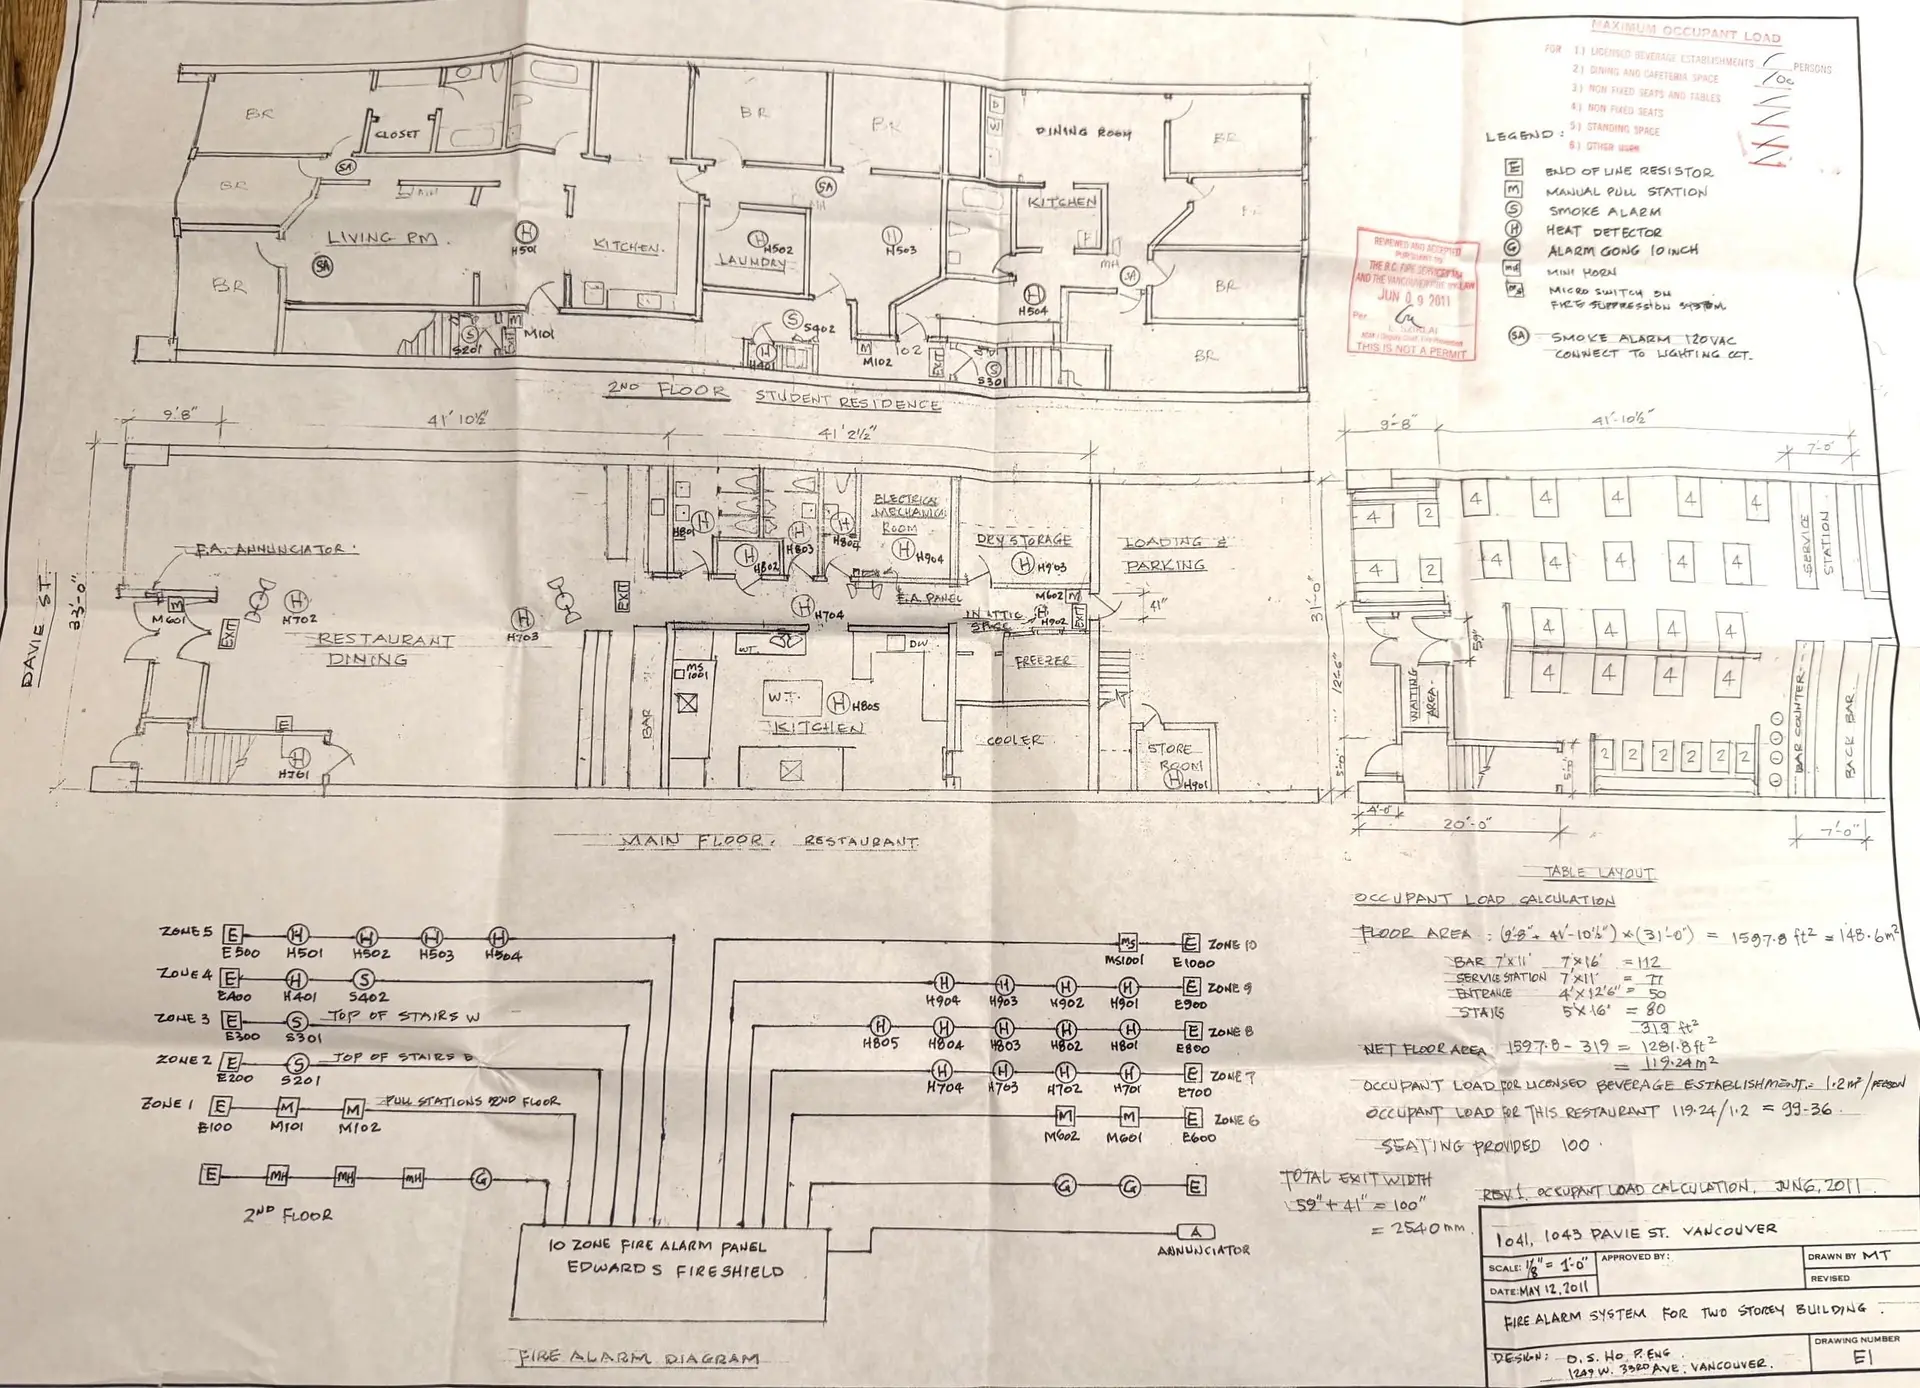 MAXIMUM OCCUPANT LOAD
FOR 1) LICENSED BEVERAGE ESTABLISHMENTS PERSONS
2) DINING AND CAFETERIA SPACE 100
3) NON FIXED SEATS AND TABLES
4) NON FIXED SEATS
5) STANDING SPACE
6) OTHER
LEGEND:
E END OF LINE RESISTOR
M MANUAL PULL STATION
S SMOKE ALARM
H HEAT DETECTOR
G ALARM GONG 10 INCH
MH MINI HORN
MS MICRO SWITCH ON
FIRE SUPPRESSION SYSTEM
SA SMOKE ALARM 120VAC
CONNECT TO LIGHTING CCT.
REVIEWED AND ACCEPTED
PURSUANT TO
THE B.C. FIRE SERVICES
JUN 09 2011
Per.
THIS IS NOT A PERMIT
BR
CLOSET
BR
BR
BR
BR
LIVING RM.
SA
SA
H H501
KITCHEN
H H502
LAUNDRY
SA
MH
H503
D
W
DINING ROOM
KITCHEN
MH
SA
H H504
BR
BR
BR
S S201
M M101
EXIT
S S402
H H401
M M102
102
EXIT
S S301
2ND FLOOR STUDENT RESIDENCE
9'8"
41' 10½"
41' 2½"
DAVIE ST.
33'-0"
F.A. ANNUNCIATOR.
M M601
EXIT
H H702
RESTAURANT
DINING
H H703
EXIT
H H801
H H802
H H803
H H804
ELECTRICAL
MECHANICAL
ROOM
H H904
DRY STORAGE
H H903
LOADING &
PARKING
F.A. PANEL
H H704
IN ATTIC
SPACE
M602 M
H H902
EXIT
41"
31'-0"
W.T.
DW
MS
1001
W.T.
H H805
KITCHEN
BAR
FREEZER
COOLER
STORE
ROOM
H H901
E
H H701
MAIN FLOOR. RESTAURANT
9'-8"
41'-10½"
7'-0"
4 2 4 4 4 4 4
4 2 4 4 4 4 4
4 4 4
4 4 4 4
2 2 2 2 2 2
1 1 1 1
SERVICE
STATION
WAITING
AREA
BAR COUNTER
BACK BAR
59"
12'-6"
5'-0"
5'-0"
4'-0"
20'-0"
7'-0"
TABLE LAYOUT
OCCUPANT LOAD CALCULATION
FLOOR AREA : (9'8" + 41'-10½") × (31'-0") = 1597.8 ft² = 148.6 m²
BAR 7'X11' 7'X16' = 112
SERVICE STATION 7'X11' = 77
ENTRANCE 4'X12'6" = 50
STAIRS 5'X16' = 80
319 ft²
NET FLOOR AREA 1597.8 - 319 = 1281.8 ft²
= 119.24 m²
OCCUPANT LOAD FOR LICENSED BEVERAGE ESTABLISHMENT = 1.2 m²/PERSON
OCCUPANT LOAD FOR THIS RESTAURANT 119.24/1.2 = 99.36.
SEATING PROVIDED 100.
TOTAL EXIT WIDTH
59" + 41" = 100"
= 2540 mm.
ZONE 5 E H H H H
E500 H501 H502 H503 H504
ZONE 4 E H S
E400 H401 S402
ZONE 3 E S TOP OF STAIRS W
E300 S301
ZONE 2 E S TOP OF STAIRS E
E200 S201
ZONE 1 E M M PULL STATIONS 2ND FLOOR
E100 M101 M102
E MH MH MH G
2ND FLOOR
MS E ZONE 10
MS1001 E1000
H H H H E ZONE 9
H904 H903 H902 H901 E900
H H H H H E ZONE 8
H805 H804 H803 H802 H801 E800
H H H H E ZONE 7
H704 H703 H702 H701 E700
M M E ZONE 6
M602 M601 E600
G G E
A
ANNUNCIATOR
10 ZONE FIRE ALARM PANEL
EDWARDS FIRESHIELD
FIRE ALARM DIAGRAM
REV 1. OCCUPANT LOAD CALCULATION. JUN 6, 2011
1041, 1043 DAVIE ST. VANCOUVER
SCALE: 1/8" = 1'-0"
APPROVED BY:
DRAWN BY MT
DATE: MAY 12, 2011
REVISED
FIRE ALARM SYSTEM FOR TWO STOREY BUILDING.
DESIGN: D. S. HO P. ENG.
1249 W. 33RD AVE. VANCOUVER.
DRAWING NUMBER
E1